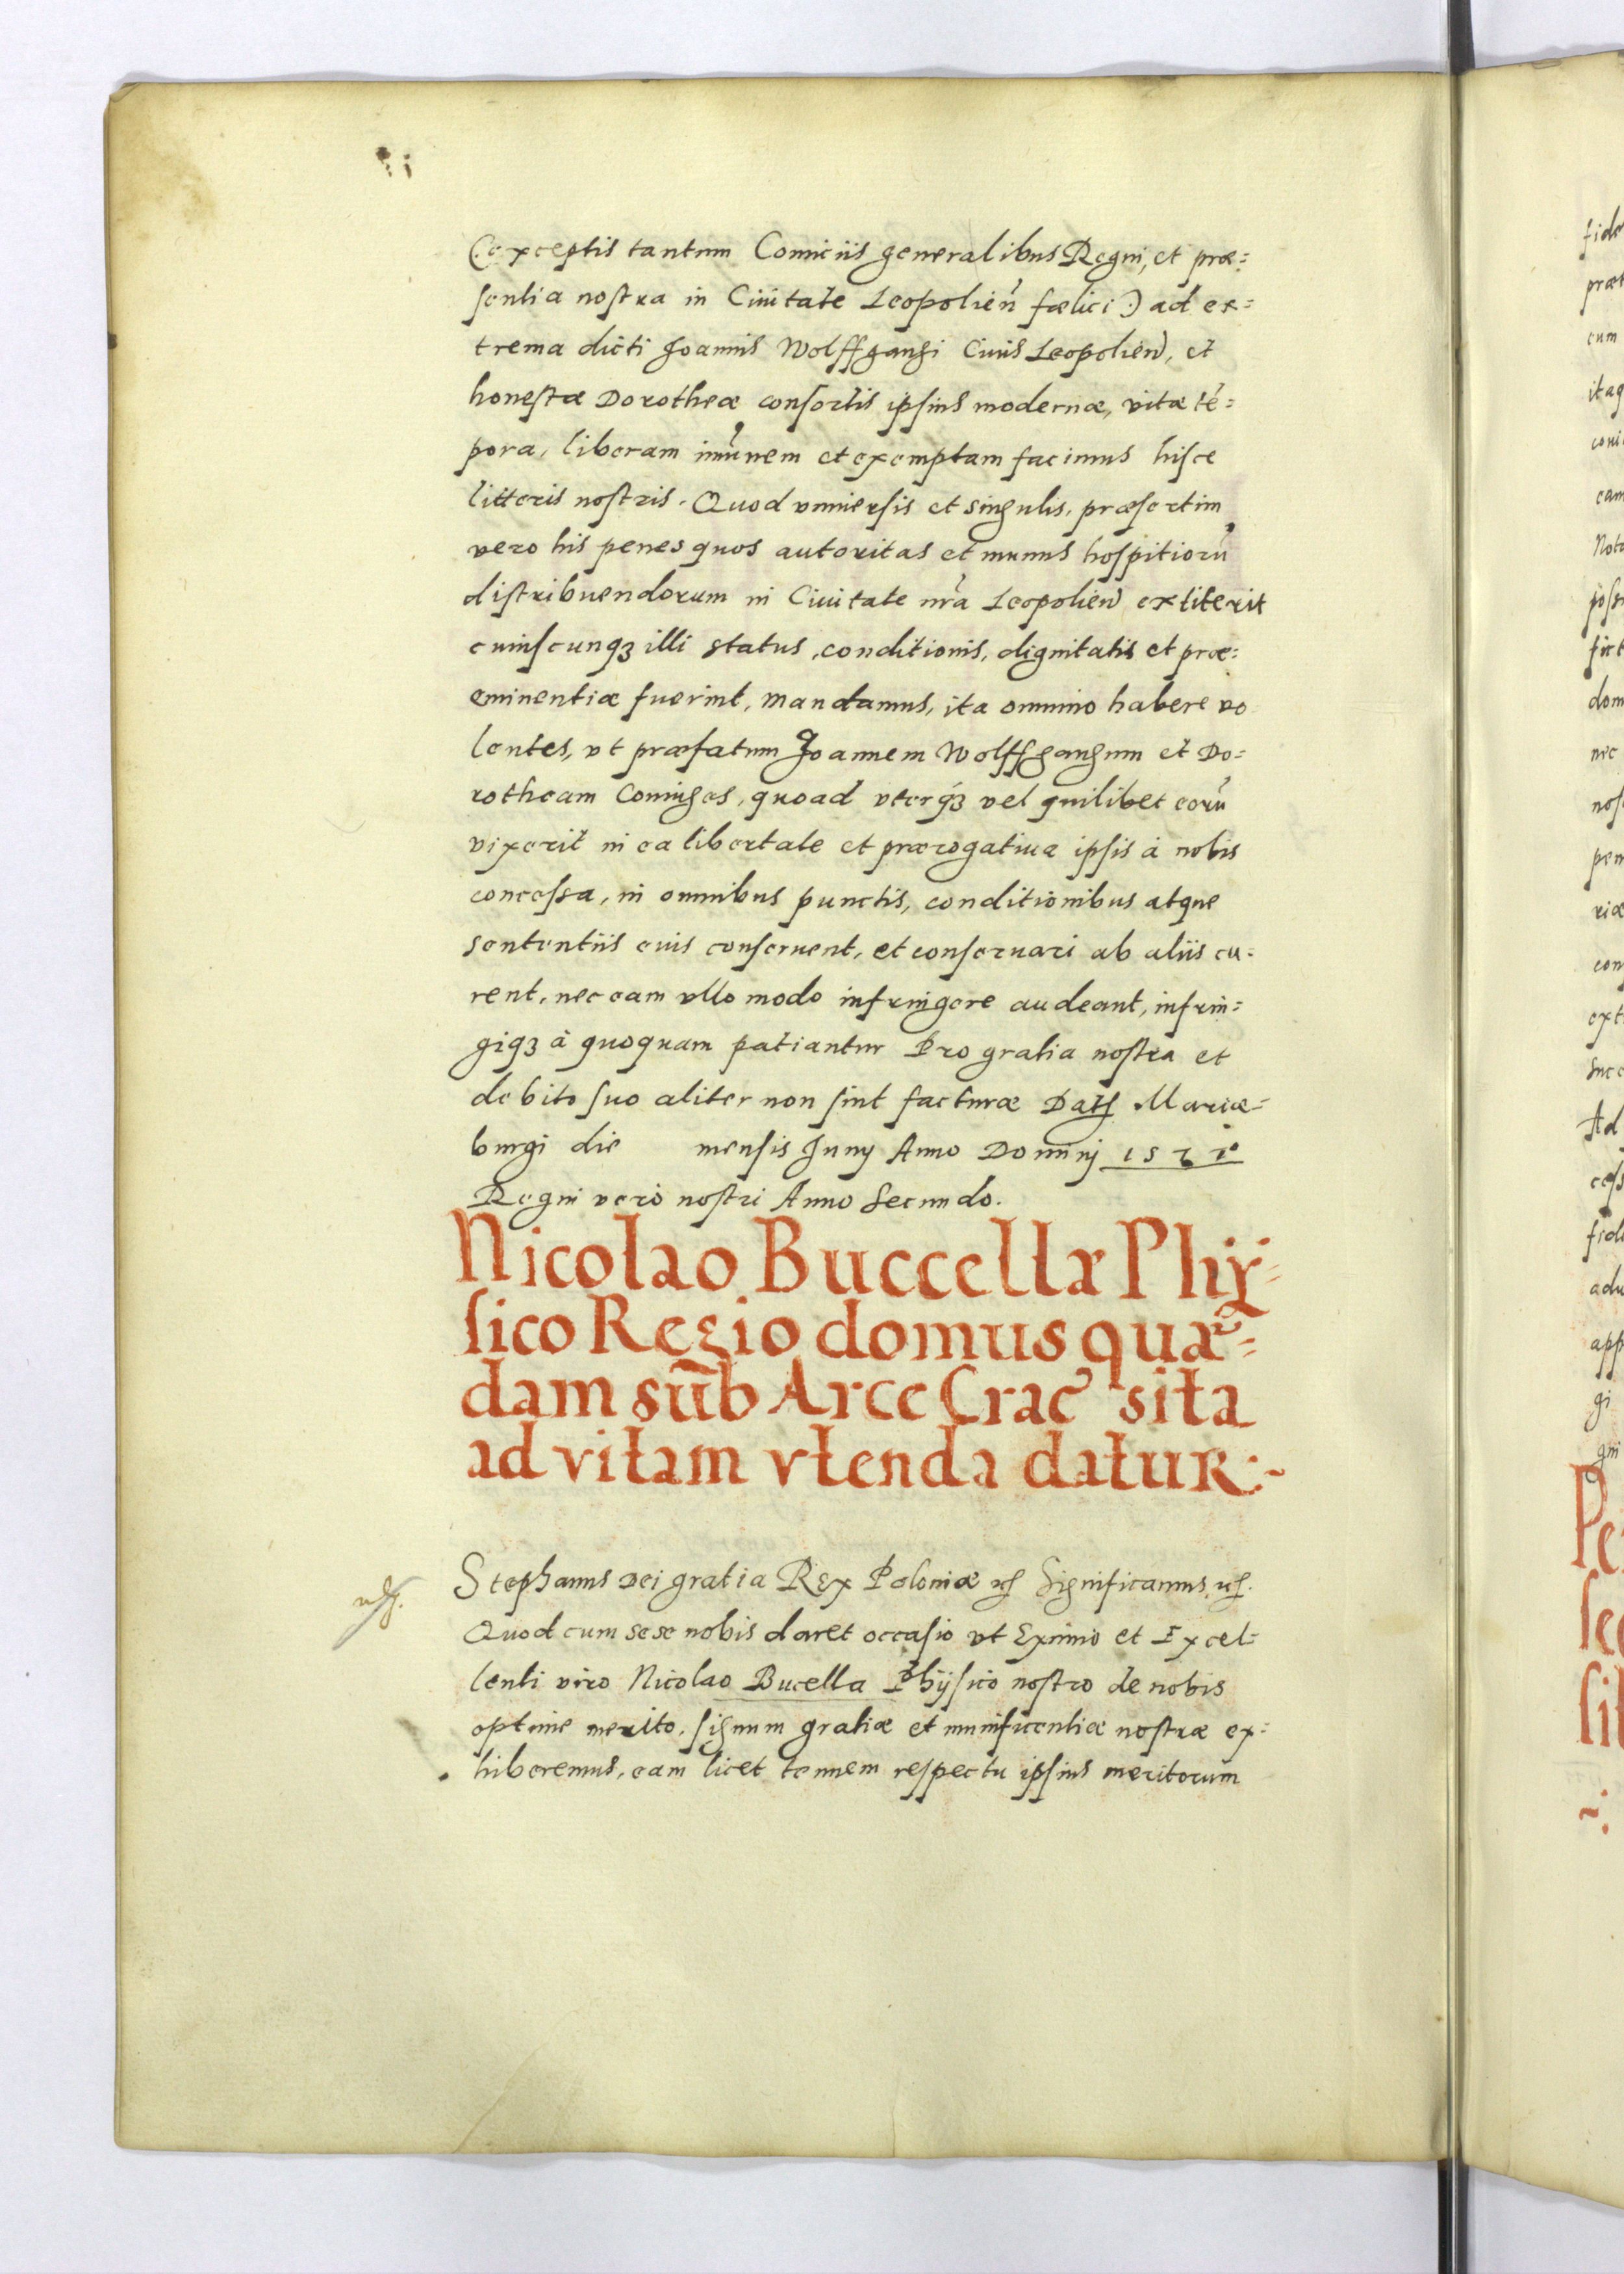 (exceptis tantum Comiciis generalibus Regni, et præ=
sentia nostra in Ciuitate Leopolien̄ fœlici) ad ex=
trema dicti Joannis Wolffgangi Ciuis Leopolien̄, et
honestæ Dorotheæ consortis ipsius modernæ, vitæ tē=
pora, liberam imūnem et exemptam facimus hisce
litteris nostris. Quod vniuersis et singulis, præsertim
vero his penes quos autoritas et munus hospitiorū
distribuendorum in Ciuitate nr̄a Leopolien̄ extiterit
cuiuscunqꝫ illi status, conditionis, dignitatis et præ=
eminentiæ fuerint, mandamus, ita omnino habere vo
lentes, vt præfatum Joannem Wolffgangum et Do=
rotheam Coniuges, quoad vterqꝫ vel quilibet eorū
vixerit in ea libertate et prærogatiua ipsis à nobis
concessa, in omnibus punctis, conditionibus atque
sententiis eius conseruent, et conseruari ab aliis cu=
rent, nec eam vllo modo infringere audeant, infrin=
giqꝫ à quoquam patiantur Pro gratia nostra et
debito suo aliter non sint facturæ Datꝭ Mariæ=
burgi die mensis Junij Anno Domini
Regni vero nostri Anno Secundo.
Nicolao Buccellæ Phy=
sico Regio domus quæ=
dam sub Arce Crac̄ sita
ad vitam vtenda datur:~
Stephanus Dei gratia Rex Poloniæ etc̄ Significamus etc̄.
Quod cum sese nobis daret occasio vt Eximio et Excel=
lenti viro Nicolao Bucella Physico nostro de nobis
optime merito, signum gratiæ et munificentiæ nostræ ex=
hiberemus, eam licet tenuem respectu ipsius meritorum